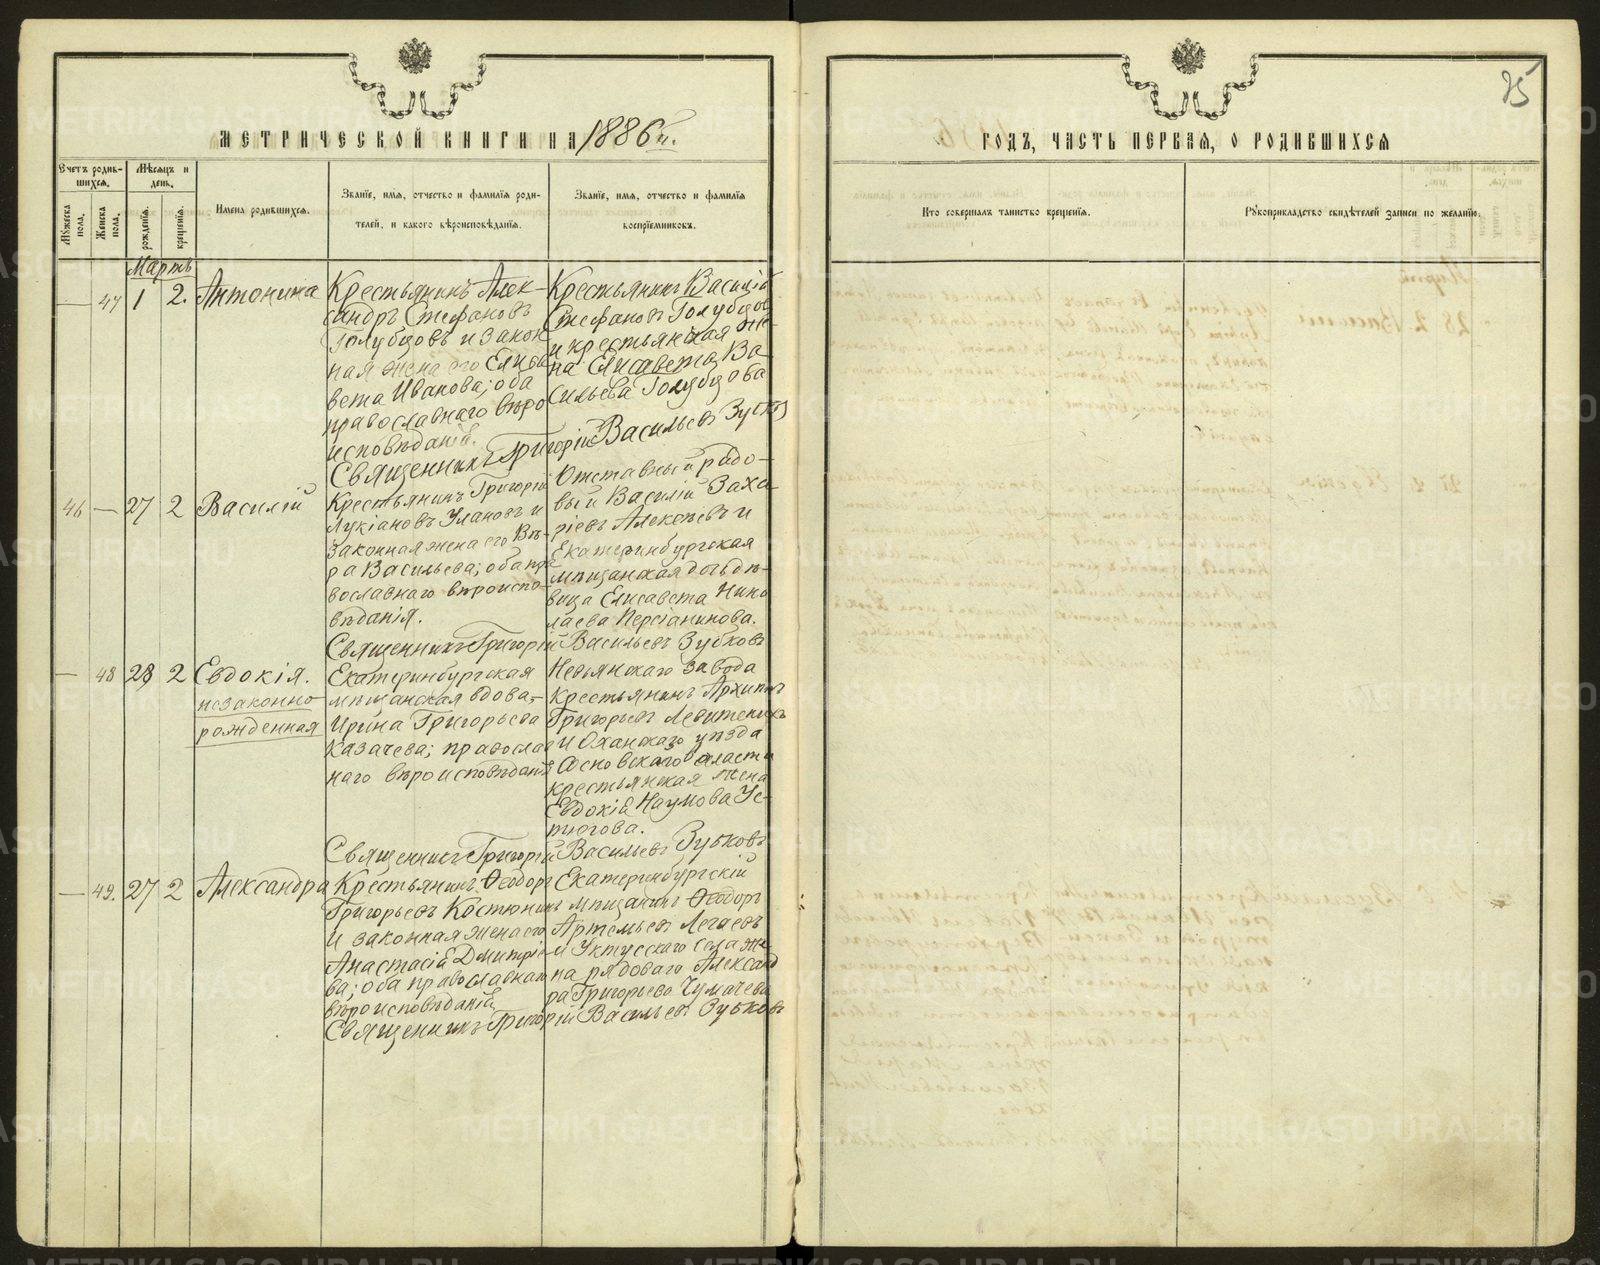 МЕТРИЧЕСКОЙ КНИГИ НА 1886 г.
Счетъ родив-
шихся.
Мѣсяцъ и
день.
Мужеска
пола.
Женска
пола.
рожденія.
крещенія.
Имена родившихся.
Званіе, имя, отчество и фамилія роди-
телей, и какого вѣроисповѣданія.
Званіе, имя, отчество и фамилія
воспріемниковъ.
Мартъ
— 47 1 2. Антонина
Крестьянинъ Алек-
сандръ Стефановъ
Голубцовъ и закон
ная жена его Елиса
вета Иванова; оба
православнаго вѣро
исповѣданія.
Крестьянинъ Василій
Стефановъ Голубцов
и крестьянская же-
на Елисавета Ва
сильева Голубцова
Священникъ Григорій Васильевъ Зубковъ
46 — 27 2 Василій
Крестьянинъ Григорій
Лукіановъ Улановъ и
законная жена его Вѣ-
ра Васильева; оба пра
вославнаго вѣроиспо-
вѣданія.
Отставный рядо-
вый Василій Заха-
ріевъ Алексѣевъ и
Екатеринбургская
мѣщанская дочь дѣ-
вица Елисавета Нико
лаева Персіанинова.
Священникъ Григорій Васильевъ Зубковъ
— 48 28 2 Евдокія.
незаконно
рожденная
Екатеринбургская
мѣщанская вдова,
Ирина Григорьева
Казачева; правосла
наго вѣроисповѣданія
Невьянскаго завода
крестьянинъ Архипъ
Григорьевъ
и Оханскаго уѣзда
Сосновской власти
крестьянская жена
Евдокія Наумова Ус-
тюгова.
Священникъ Григорій Васильевъ Зубковъ
— 49. 27 2 Александра
Крестьянинъ Ѳеодоръ
Григорьевъ Костюнинъ
и законная жена его
Анастасія Димитріе-
ва; оба православнаго
вѣроисповѣданія
Екатеринбургскій
мѣщанинъ Ѳеодоръ
Артемьевъ Легаевъ
и Уктусскаго села же-
на рядоваго Александ
ра Григорьева Чумачева
Священникъ Григорій Васильевъ Зубковъ
75
ГОДЪ, ЧАСТЬ ПЕРВАЯ, О РОДИВШИХСЯ
Кто совершалъ таинство крещенія.
Рукоприкладство свидѣтелей записи по желанію.
METRIKI.GASO-URAL.RU